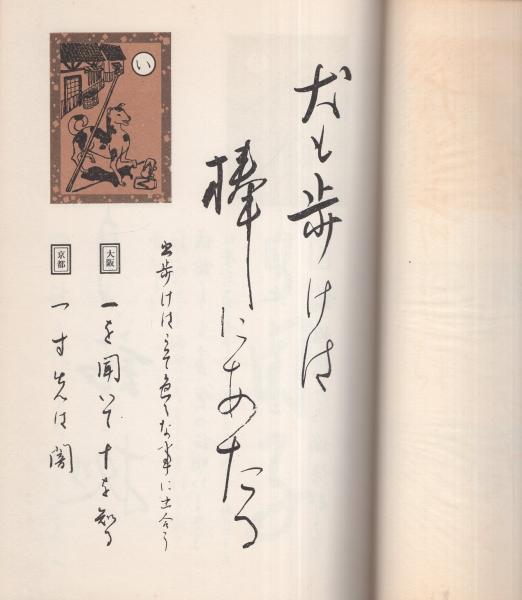 犬も歩けは
棒にあたる
出歩けは
な事に出合う
大阪
一を聞いて十を知る
京都
一寸先は闇
い